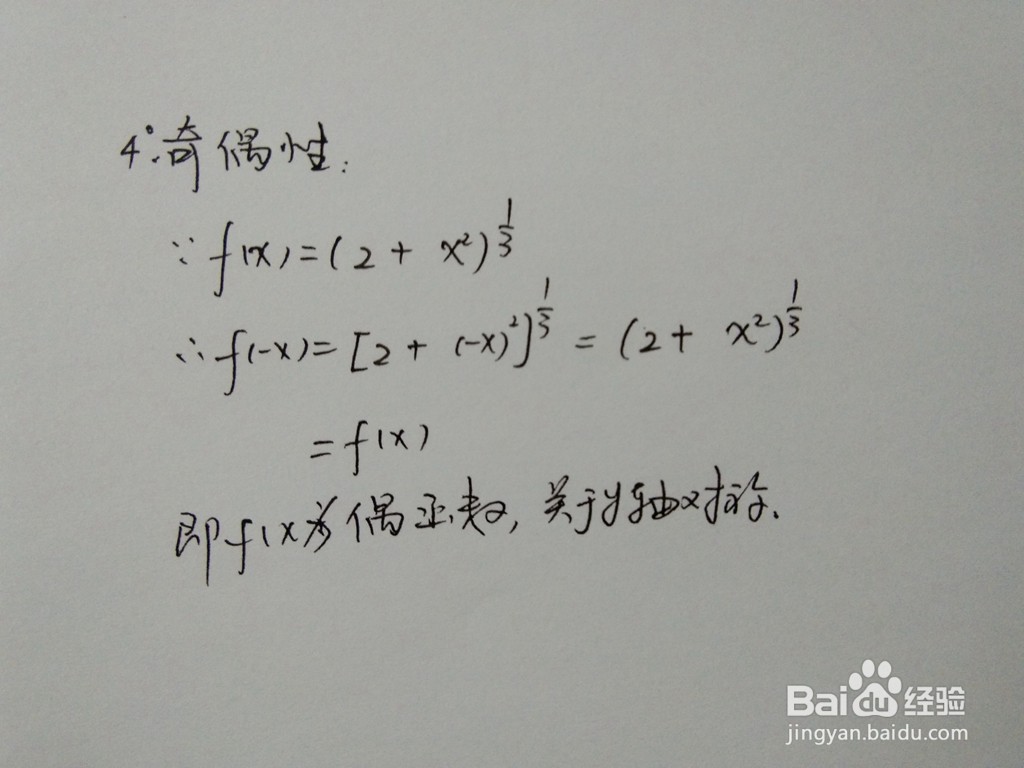 4°.奇偶性:
∵ f(x)=(2+ x²)^{1/3}
∴ f(-x)= [2+ (-x)²]^{1/3} = (2+ x²)^{1/3}
=f(x)
即f(x)为偶函数,关于y轴对称.
Bai du 经验
jingyan.baidu.com